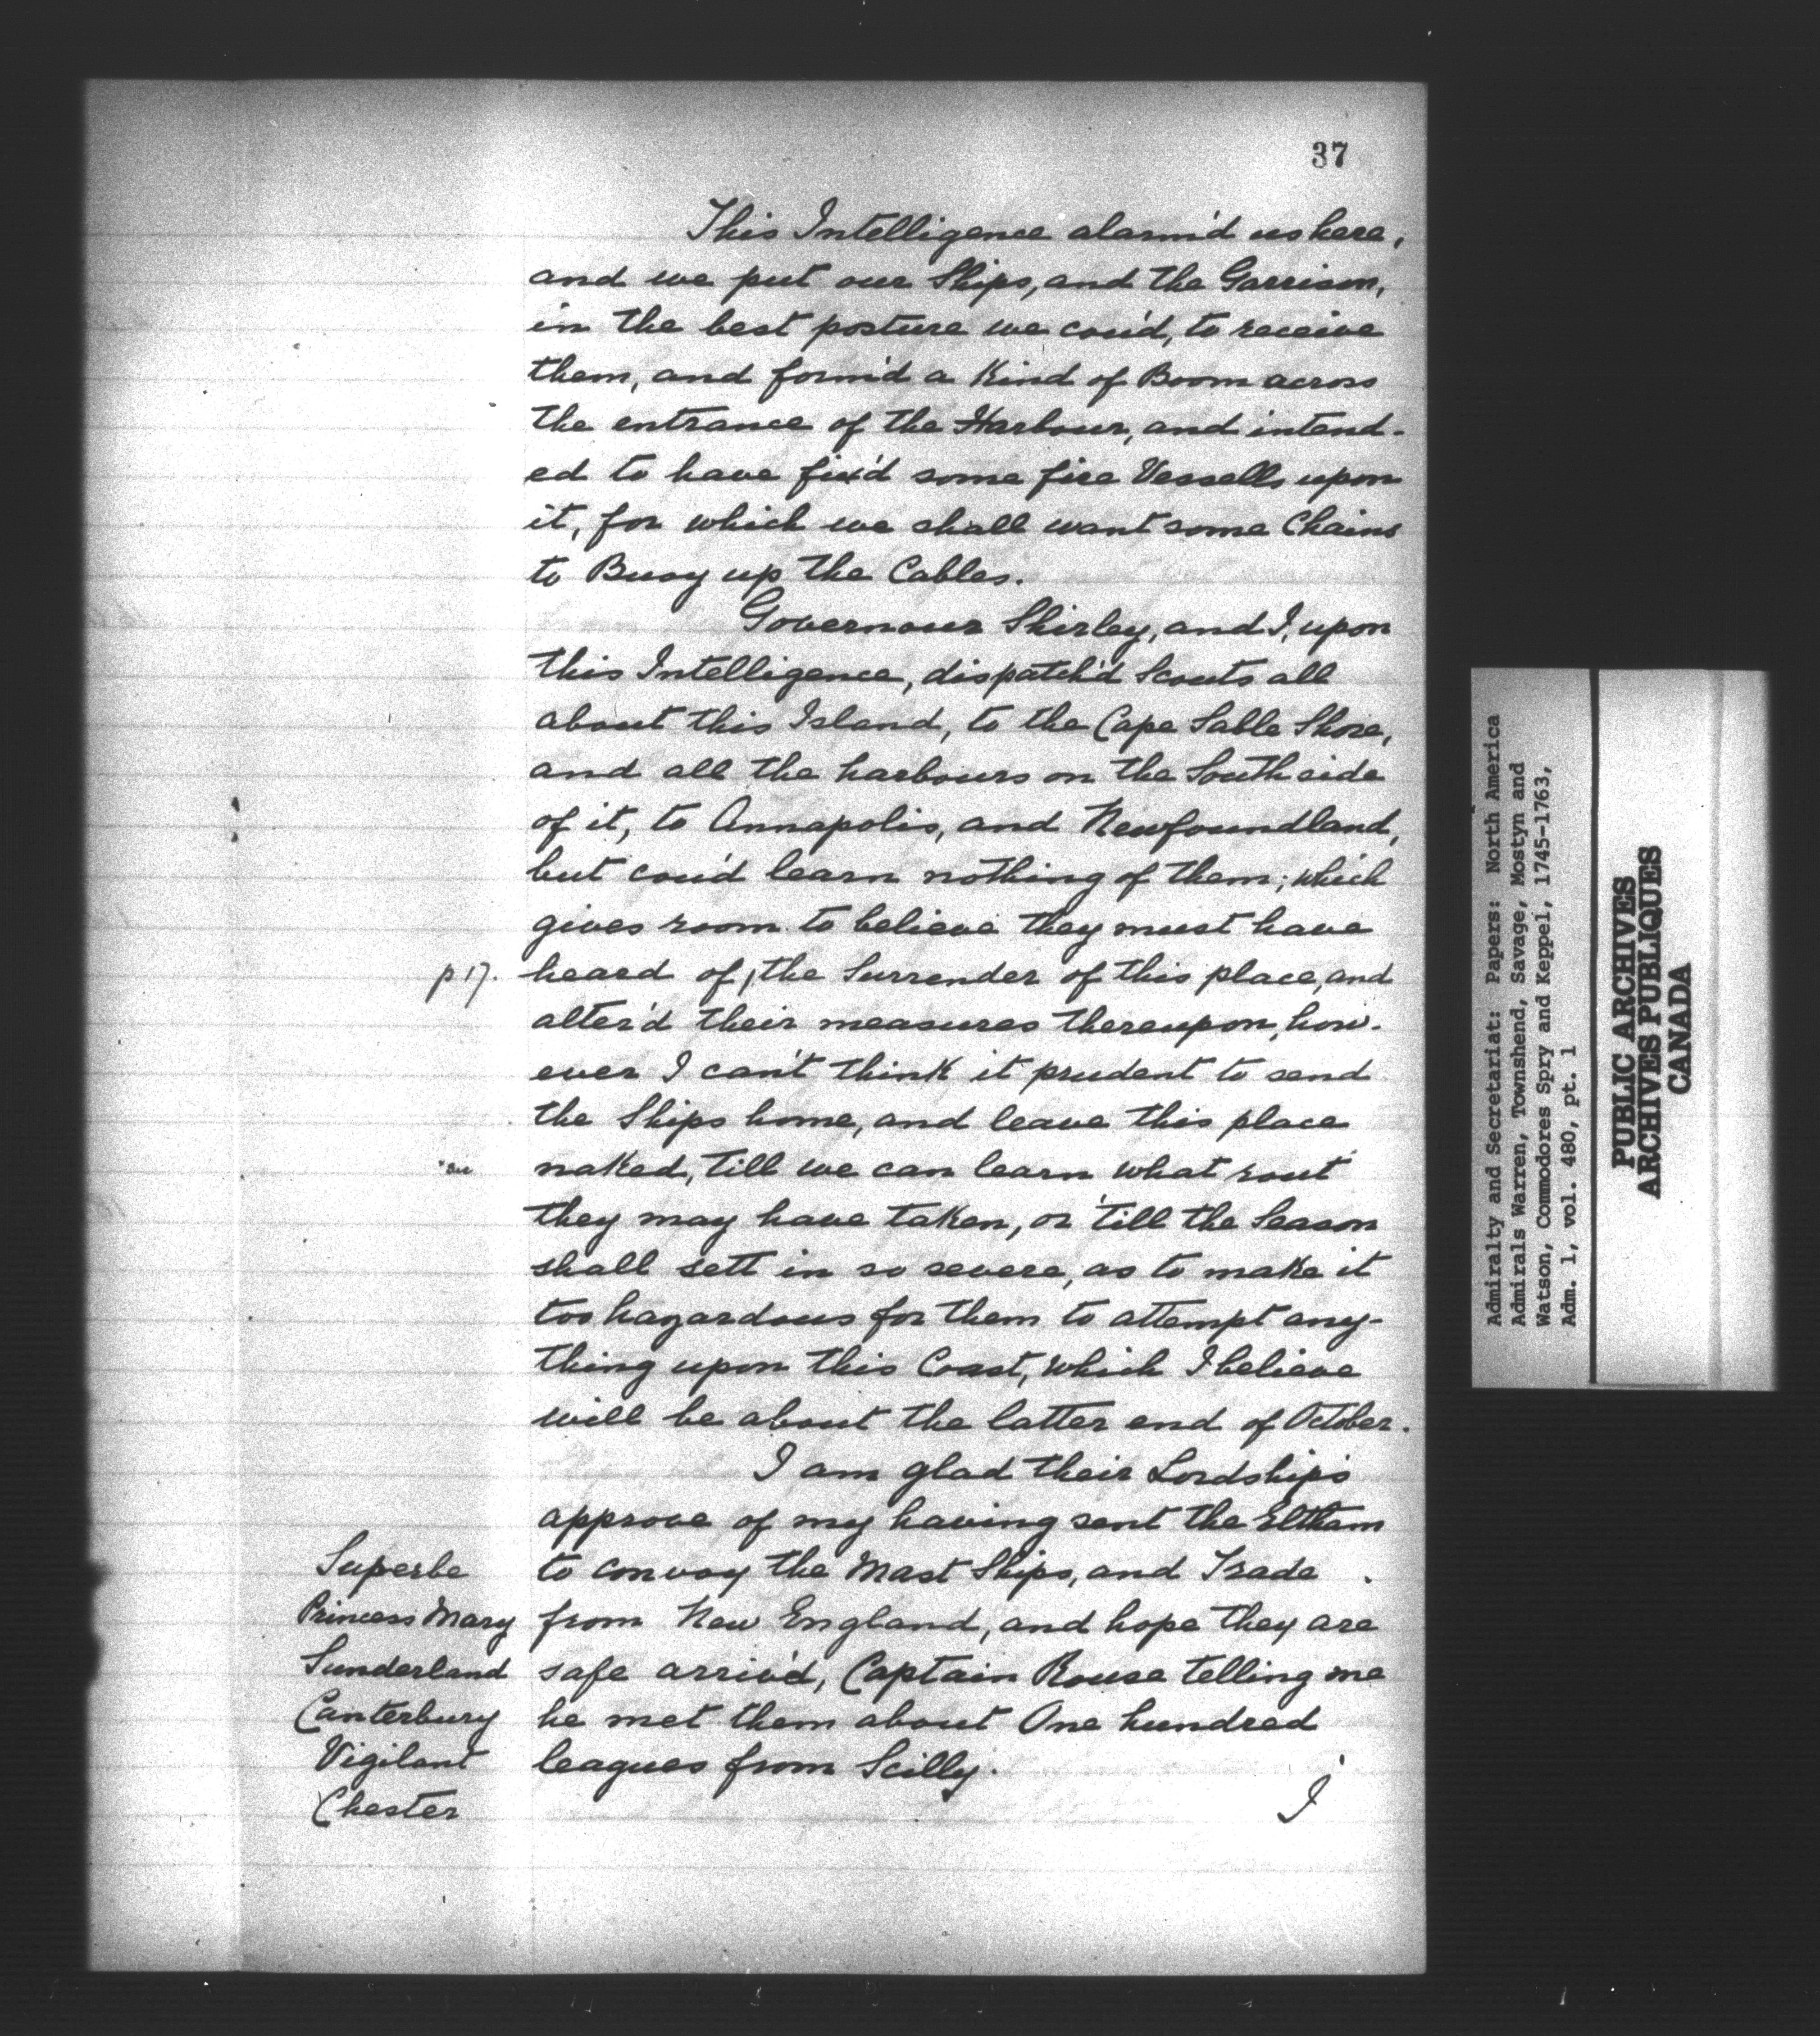 37
This Intelligence alarm'd us here,
and we put our Ships, and the Garrison,
in the best posture we cou'd, to receive
them, and form'd a Kind of Boom across
the entrance of the Harbour, and intend-
ed to have fix'd some fire Vessells upon
it, for which we shall want some Chains
to Buoy up the Cables.
Governour Shirley, and I, upon
this Intelligence, dispatch'd Scouts all
about this Island, to the Cape Sable Shore,
and all the harbours on the South side
of it, to Annapolis, and Newfoundland,
but cou'd learn nothing of them; which
gives room to believe they must have
p 17. heard of, the Surrender of this place, and
alter'd their measures thereupon, how-
ever I can't think it prudent to send
the Ships home, and leave this place
naked, till we can learn what rout
they may have taken, or 'till the Season
shall sett in so severe, as to make it
too hazardous for them to attempt any-
thing upon this Coast, which I believe
will be about the latter end of October.
I am glad their Lordships
approve of my having sent the Eltham
to convoy the Mast Ships, and Trade
from New England, and hope they are
safe arriv'd, Captain Rouse telling me
he met them about One hundred
leagues from Scilly.
I
Superbe
Princess Mary
Sunderland
Canterbury
Vigilant
Chester
Admiralty and Secretariat: Papers: North America
Admirals Warren, Townshend, Savage, Mostyn and
Watson, Commodores Spry and Keppel, 1745-1763,
Adm. 1, vol. 480, pt. 1
PUBLIC ARCHIVES
ARCHIVES PUBLIQUES
CANADA